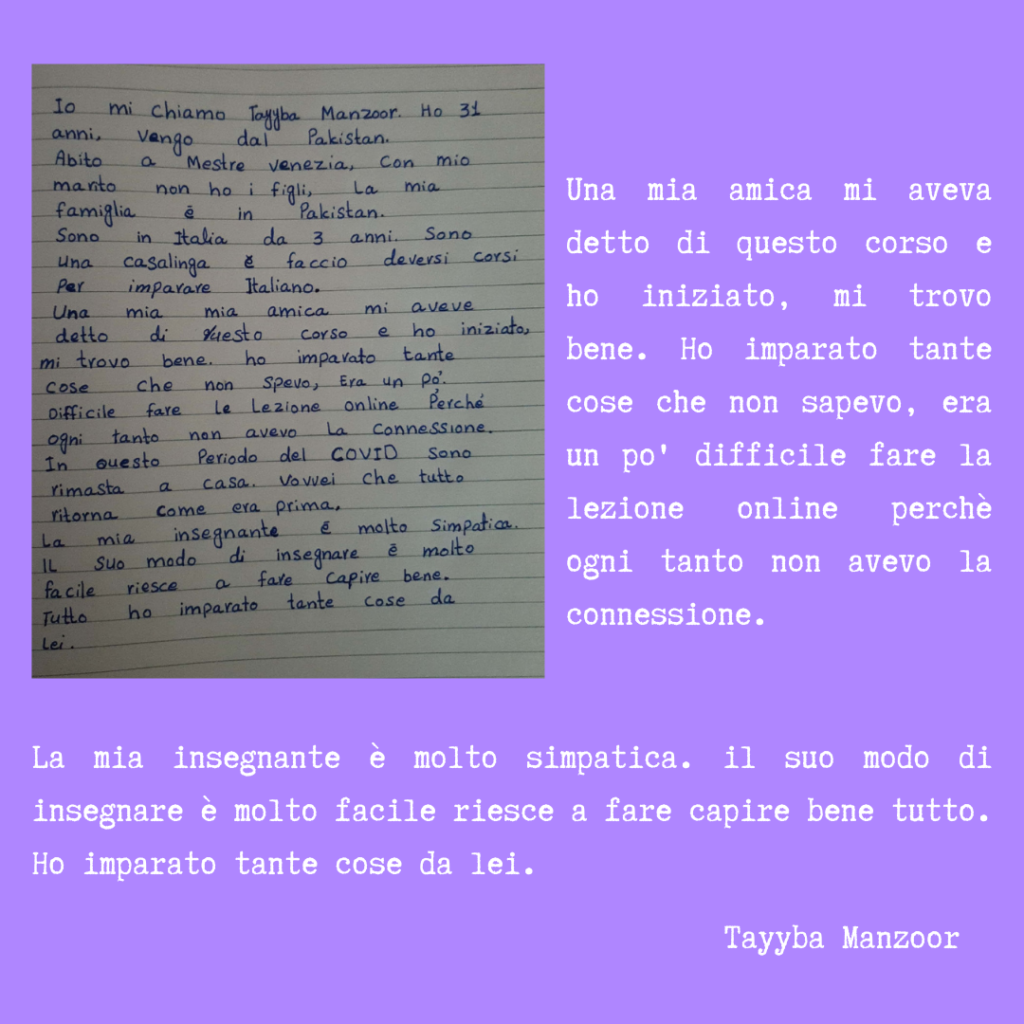 Io mi Chiamo Tayyba Manzoor. Ho 31
anni, vengo dal Pakistan.
Abito a Mestre venezia, Con mio
marito non ho i figli, La mia
famiglia è in Pakistan.
Sono in Italia da 3 anni. Sono
una casalinga è faccio deversi corsi
Per imparare Italiano.
Una mia mia amica mi aveve
detto di questo corso e ho iniziato,
mi trovo bene. ho imparato tante
cose che non Spevo, Era un Pò.
Difficile fare le Lezione online Perché
ogni tanto non avevo la Connessione.
In questo Periodo del COVID Sono
rimasta a casa. Vovvei che tutto
ritorna Come era prima,
La mia insegnante è molto Simpatica.
IL Suo modo di insegnare è molto
facile riesce a fare Capire bene.
Tutto ho imparato tante Cose da
Lei.
Una mia amica mi aveva
detto di questo corso e
ho iniziato, mi trovo
bene. Ho imparato tante
cose che non sapevo, era
un po' difficile fare la
lezione online perchè
ogni tanto non avevo la
connessione.
La mia insegnante è molto simpatica. il suo modo di
insegnare è molto facile riesce a fare capire bene tutto.
Ho imparato tante cose da lei.
Tayyba Manzoor